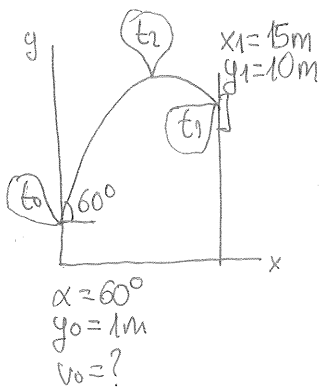 y
t₂
x1=15m
y1=10m
t₁
t₀
60°
x
α=60°
y₀=1m
v₀=?